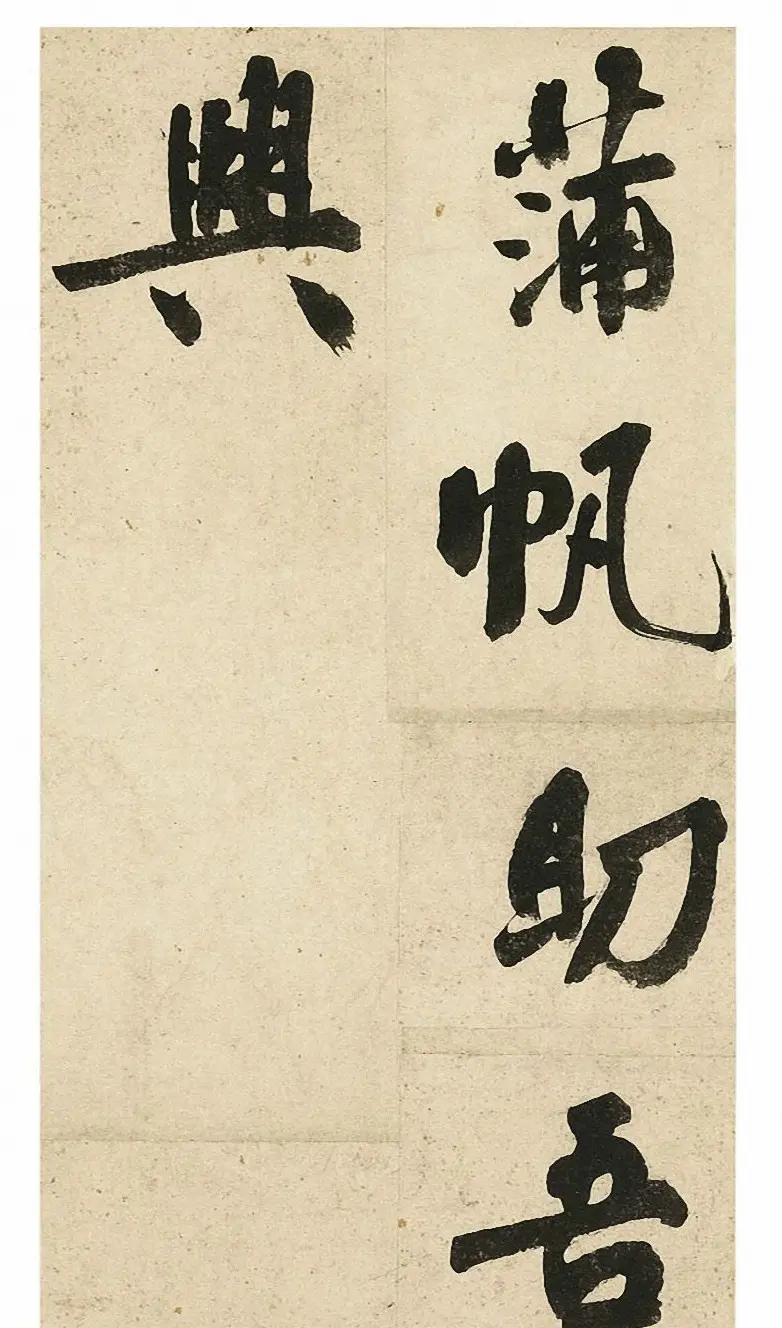 蒲帆助吾
興